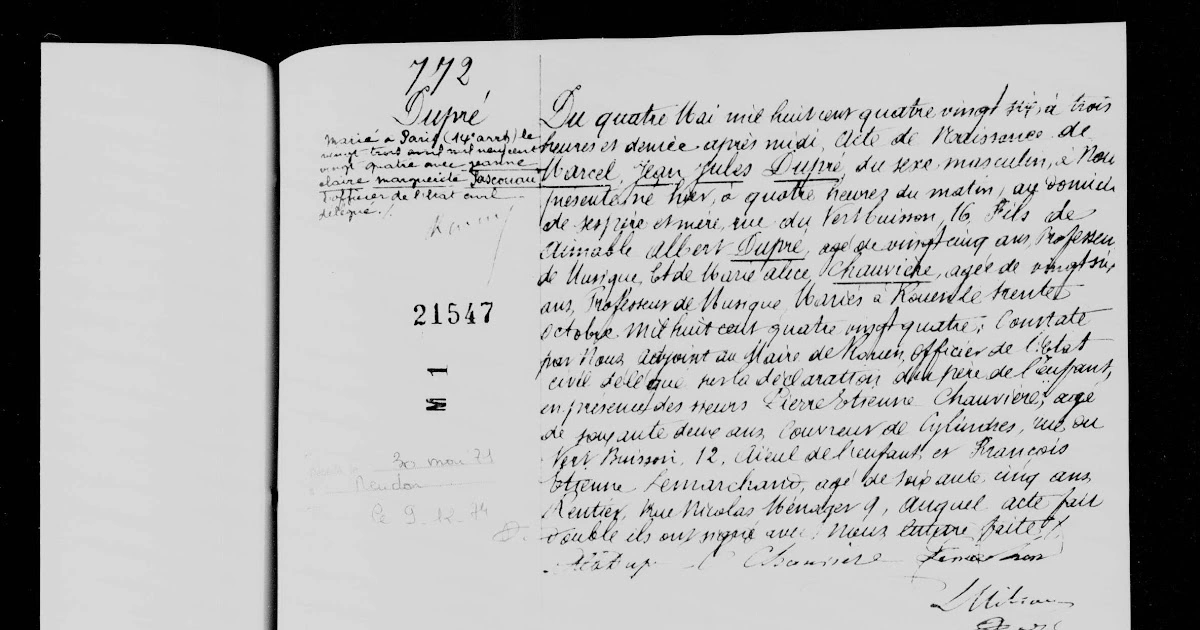 772
Dupré
Marié à Paris (14e arrt) le
vingt trois avril mil neuf cent
vingt quatre avec Jeanne
Claire Marguerite Pascouau
l'officier de l'état civil
délégué ./.
21547
M 1
30 mai 71
Meudon
Le 9.12.74
Du quatre Mai mil huit cent quatre vingt six, à trois
heures et demie après midi, Acte de Naissance de
Marcel, Jean, Jules Dupré, du sexe masculin, à Nous
présenté né hier, à quatre heures du matin, au domicile
de ses père et mère, rue du Vert Buisson, 16, Fils de
Aimable Albert Dupré, agé de vingt cinq ans, Professeur
de Musique, Et de Marie Alice Chauvière, agée de vingt six
ans, Professeur de Musique, Mariés à Rouen le trente
Octobre mil huit cent quatre vingt quatre; Constaté
par Nous Adjoint au Maire de Rouen, Officier de l'Etat
civil délégué sur la déclaration du père de l'enfant,
en présence des sieurs Pierre Etienne Chauvière, agé
de soixante deux ans, Couvreur de Cylindres, rue du
Vert Buisson, 12, Aieul de l'enfant, et François
Etienne Lemarchand, agé de soixante cinq ans,
Rentier, Rue Nicolas Ménager 9, Auquel acte fait
double ils ont signé avec Nous lecture faite ./.
Chauvière